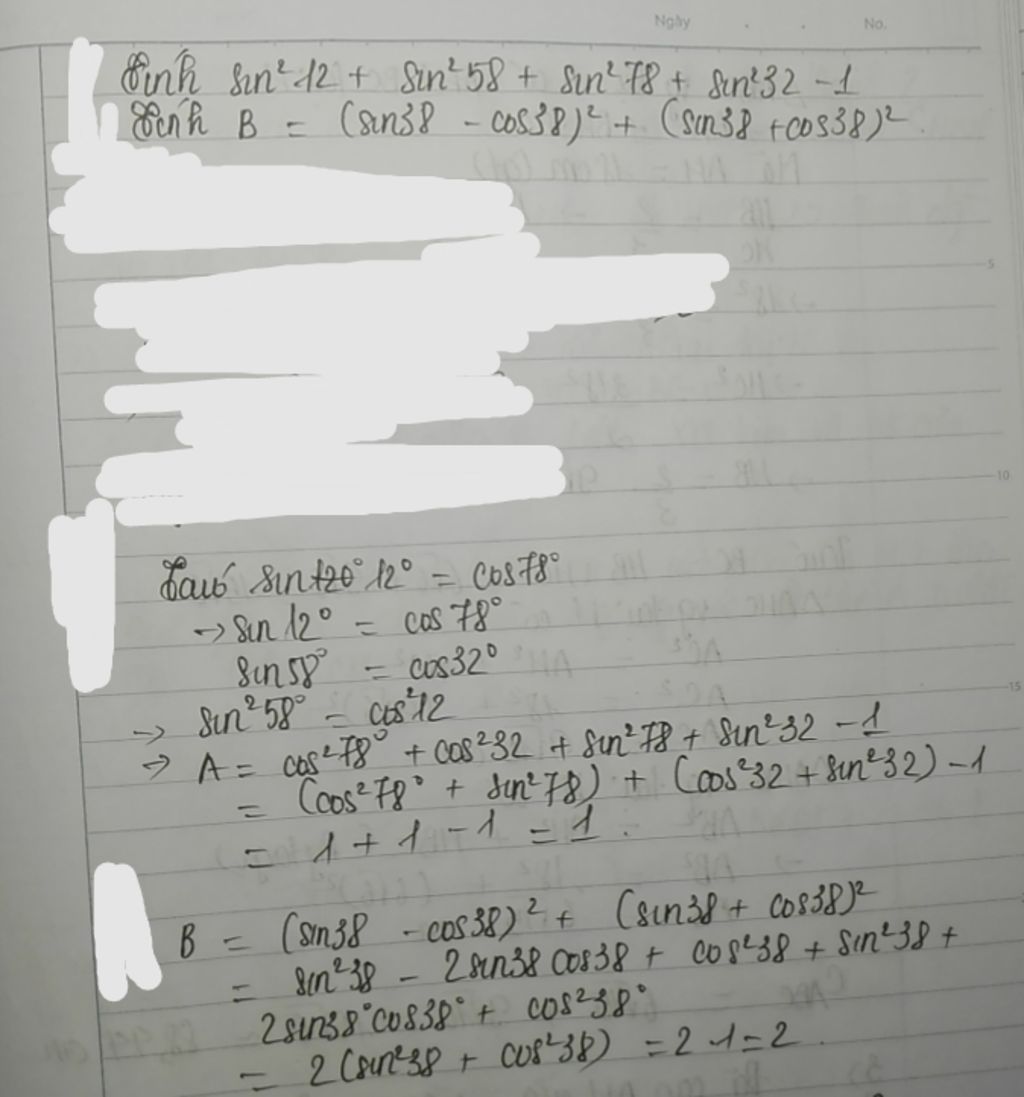 Ngày . . No.
Tính sin² 12 + sin² 58 + sin² 78 + sin² 32 - 1
Tính B = (sin38 - cos38)² + (sin38 + cos38)²
5
10
Ta có sin 12° = cos78°
→ sin 12° = cos 78°
sin 58° = cos32°
15
→ sin² 58° = cos² 12
→ A = cos² 78° + cos² 32 + sin² 78 + sin² 32 - 1
= (cos² 78° + sin² 78) + (cos² 32 + sin² 32) - 1
= 1 + 1 - 1 = 1.
B = (sin38 - cos38)² + (sin38 + cos38)²
= sin² 38 - 2sin38 cos38 + cos² 38 + sin² 38 +
2sin38° cos38° + cos² 38°
= 2(sin² 38 + cos² 38) = 2 . 1 = 2.